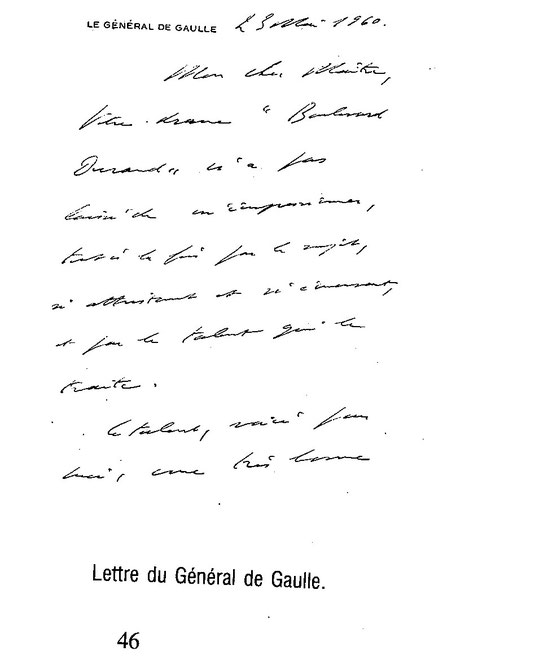 LE GÉNÉRAL DE GAULLE 23 Mai 1960.
Mon cher Maître,
Votre drame "Boulevard
Durand" n'a pas
laissé de m'impressionner,
tout à la fois par le sujet,
si attristant et si émouvant,
et par le talent qui le
traite.
Ce talent, voici pour
moi, une très bonne
Lettre du Général de Gaulle.
46